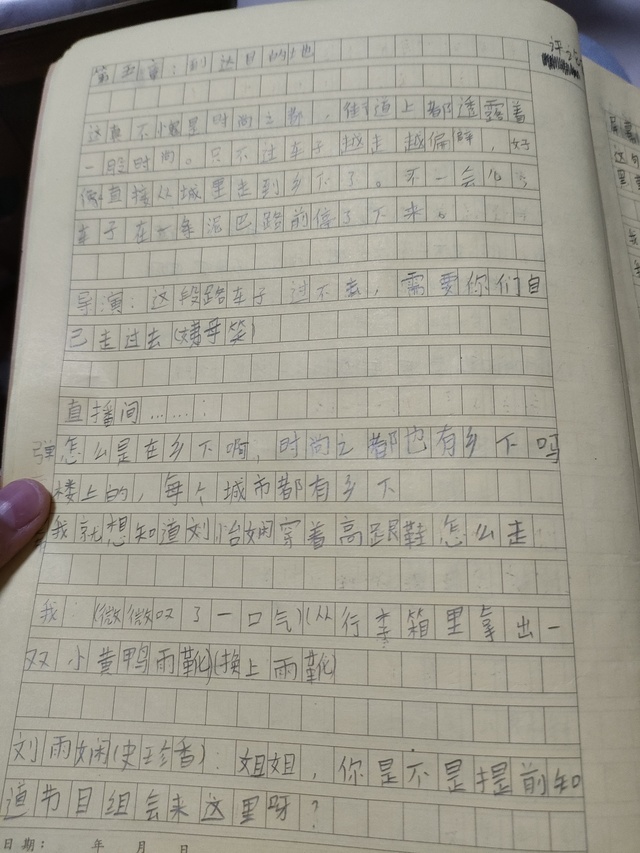 第五章：到达目的地
这真不愧是时尚之都，街道上都透露着
一段时尚。只不过车子越走越偏僻，好
像直接从城里走到乡下了。不一会儿，
车子在一条泥巴路前停了下来。
导演：这段路车子过不去，需要你们自
己走过去(姨母笑)
直播间……：
弹 怎么是在乡下啊，时尚之都也有乡下吗
楼上的，每个城市都有乡下
我就想知道刘怡娴穿着高跟鞋怎么走
我：(微微叹了一口气)(从行李箱里拿出一
双小黄鸭雨靴)(换上雨靴)
刘雨娴(史珍香)：姐姐，你是不是提前知
道节目组会来这里呀？
日期： 年 月 日